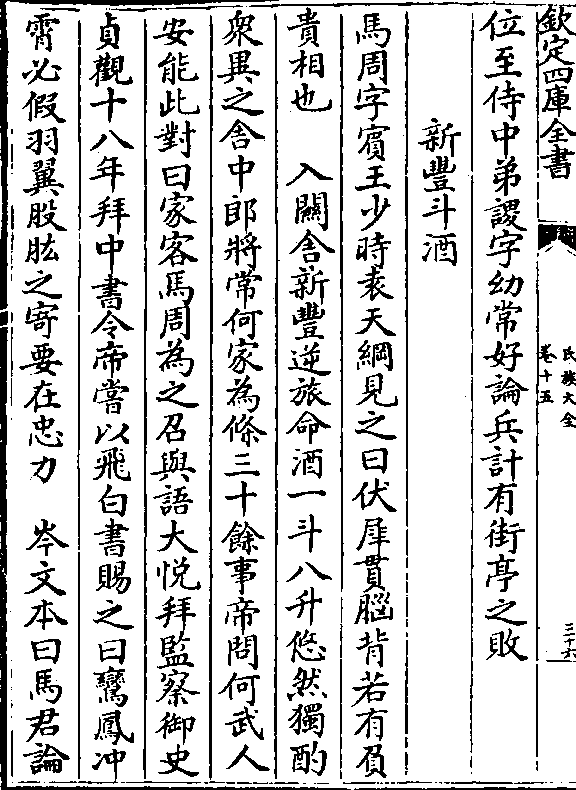 欽定四庫全書
氏族大全
卷十五
三十六
位至侍中弟謖字幼常好論兵計有街亭之敗
新豐斗酒
馬周字賓王少時袁天綱見之曰伏犀貫腦背若有負
貴相也　入關舍新豐逆旅命酒一斗八升悠然獨酌
衆異之舍中郎將常何家為條三十餘事帝問何武人
安能此對曰家客馬周為之召與語大悅拜監察御史
貞觀十八年拜中書令帝嘗以飛白書賜之曰鸞鳳冲
霄必假羽翼股肱之寄要在忠力　岑文本曰馬君論